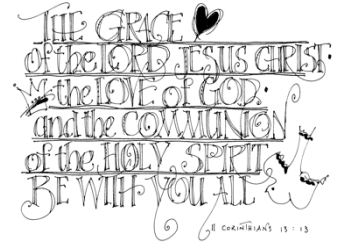 THE GRACE
of the LORD JESUS CHRIST
the LOVE of GOD
and the COMMUNION
of the HOLY SPIRIT
BE WITH YOU ALL
II CORINTHIANS 13:13